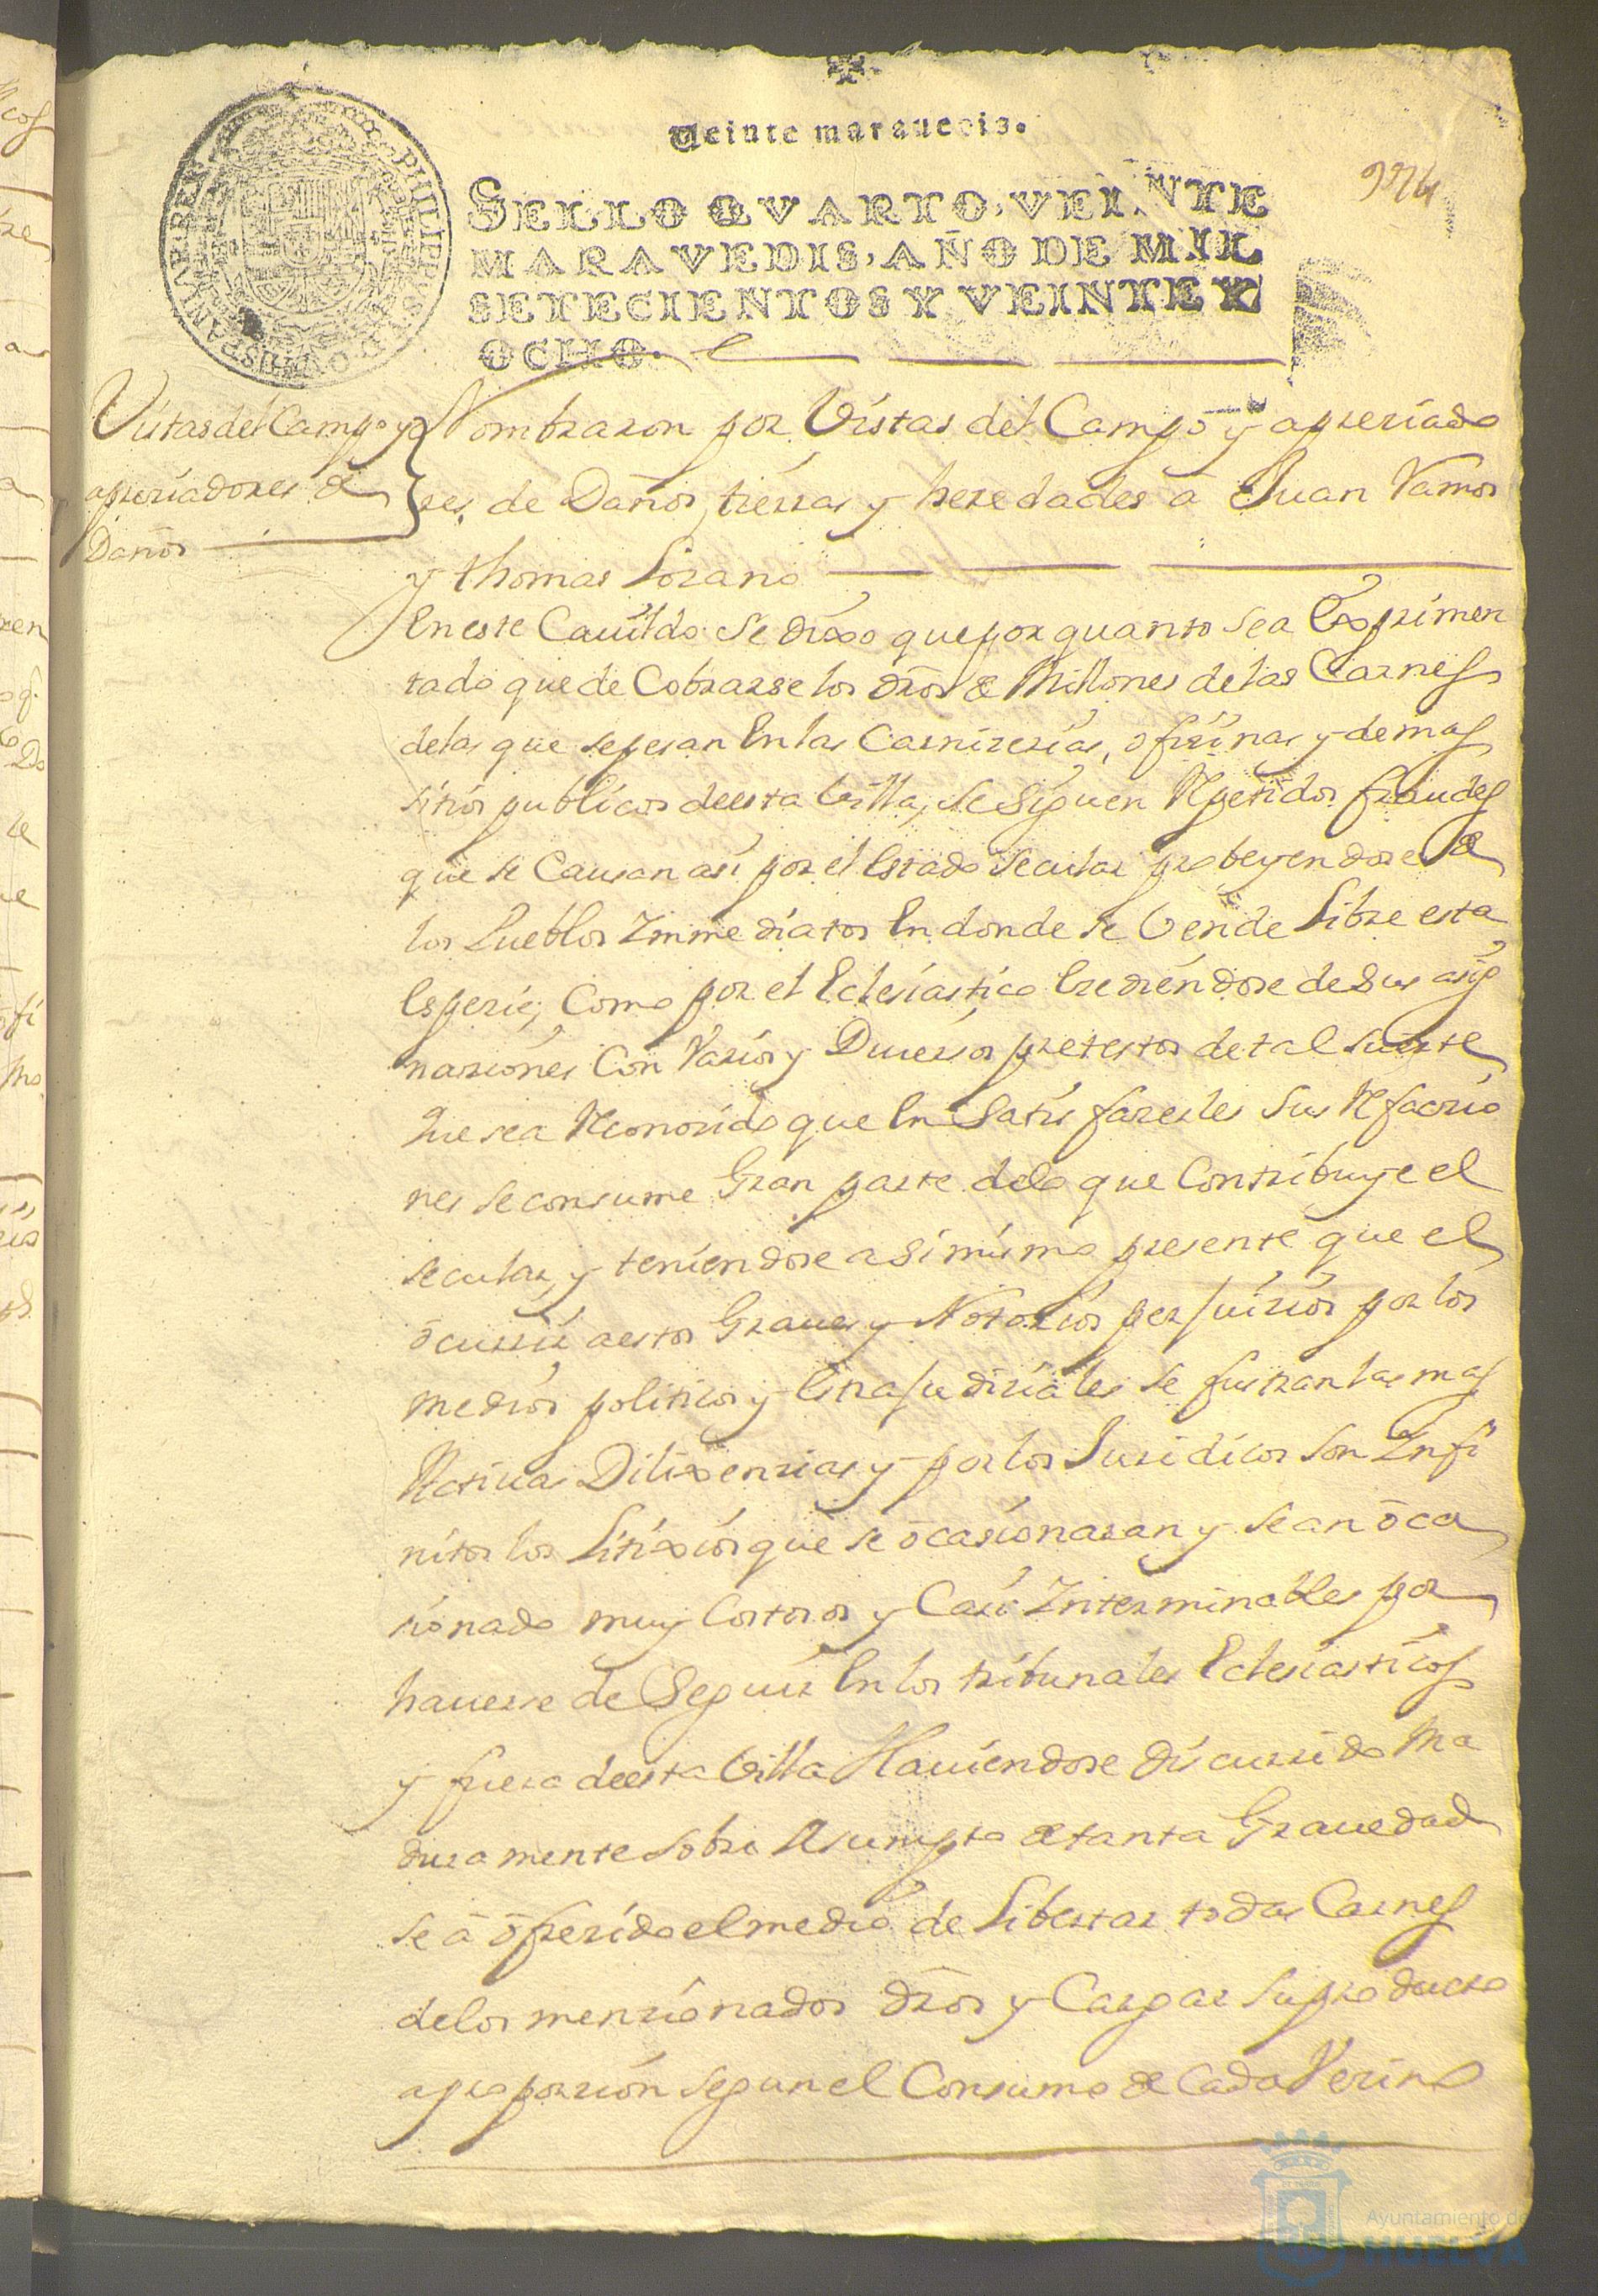 Veinte maravedis.
SELLO QVARTO, VEINTE
MARAVEDIS, AÑO DE MIL
SETECIENTOS Y VEINTE Y
OCHO.
Vistas del Campo y
apreciadores de
Daños
Nombraron por Vistas del Campo y apreciado
res de Daños, tierras y heredades a Juan Ramos
y thomas Lozano
En este Cauildo se dixo que por quanto sea Exprimen
tado que de Cobrarse los dros de Millones de las Carnes
de las que se pesan En las Carnizerias, ofizinas y demas
sitios publicos de esta Villa, se siguen Repetidos fraudes
que se Causan asi por el Estado Secular probeyendose de
los Pueblos Inmediatos En donde se Vende Libre esta
Especie, Como por el Eclesiastico Excediendose de Sus asig
naziones Con Varios y Diuersos pretestos de tal suerte
Que sea Reconozido que En Satisfazerles sus Refaczio
nes se consume Gran parte de lo que Contribuye el
secular, y teniendose asimismo presente que el
ocurrir a estos Graues y Notorios perjuizios por los
medios politicos y Extrajudiziales se frustran las mas
Actiuas Dilixenzias y por los Juridicos son Infi
nitos los Litixios que se ocasionaran y se an oca
sionado muy Costosos y Casi Interminables por
hauerse de Seguir En los tribunales Eclesiasticos
y fuera de esta Villa Hauiendose discurrido Ma
duramente sobre Asumpto de tanta Grauedad
se a ofrezido el medio de Libertar todas Carnes
de los menzionados dros y Cargar su producto
a proporzion segun el Consumo de Cada Vezino
Ayuntamiento de
HUELVA